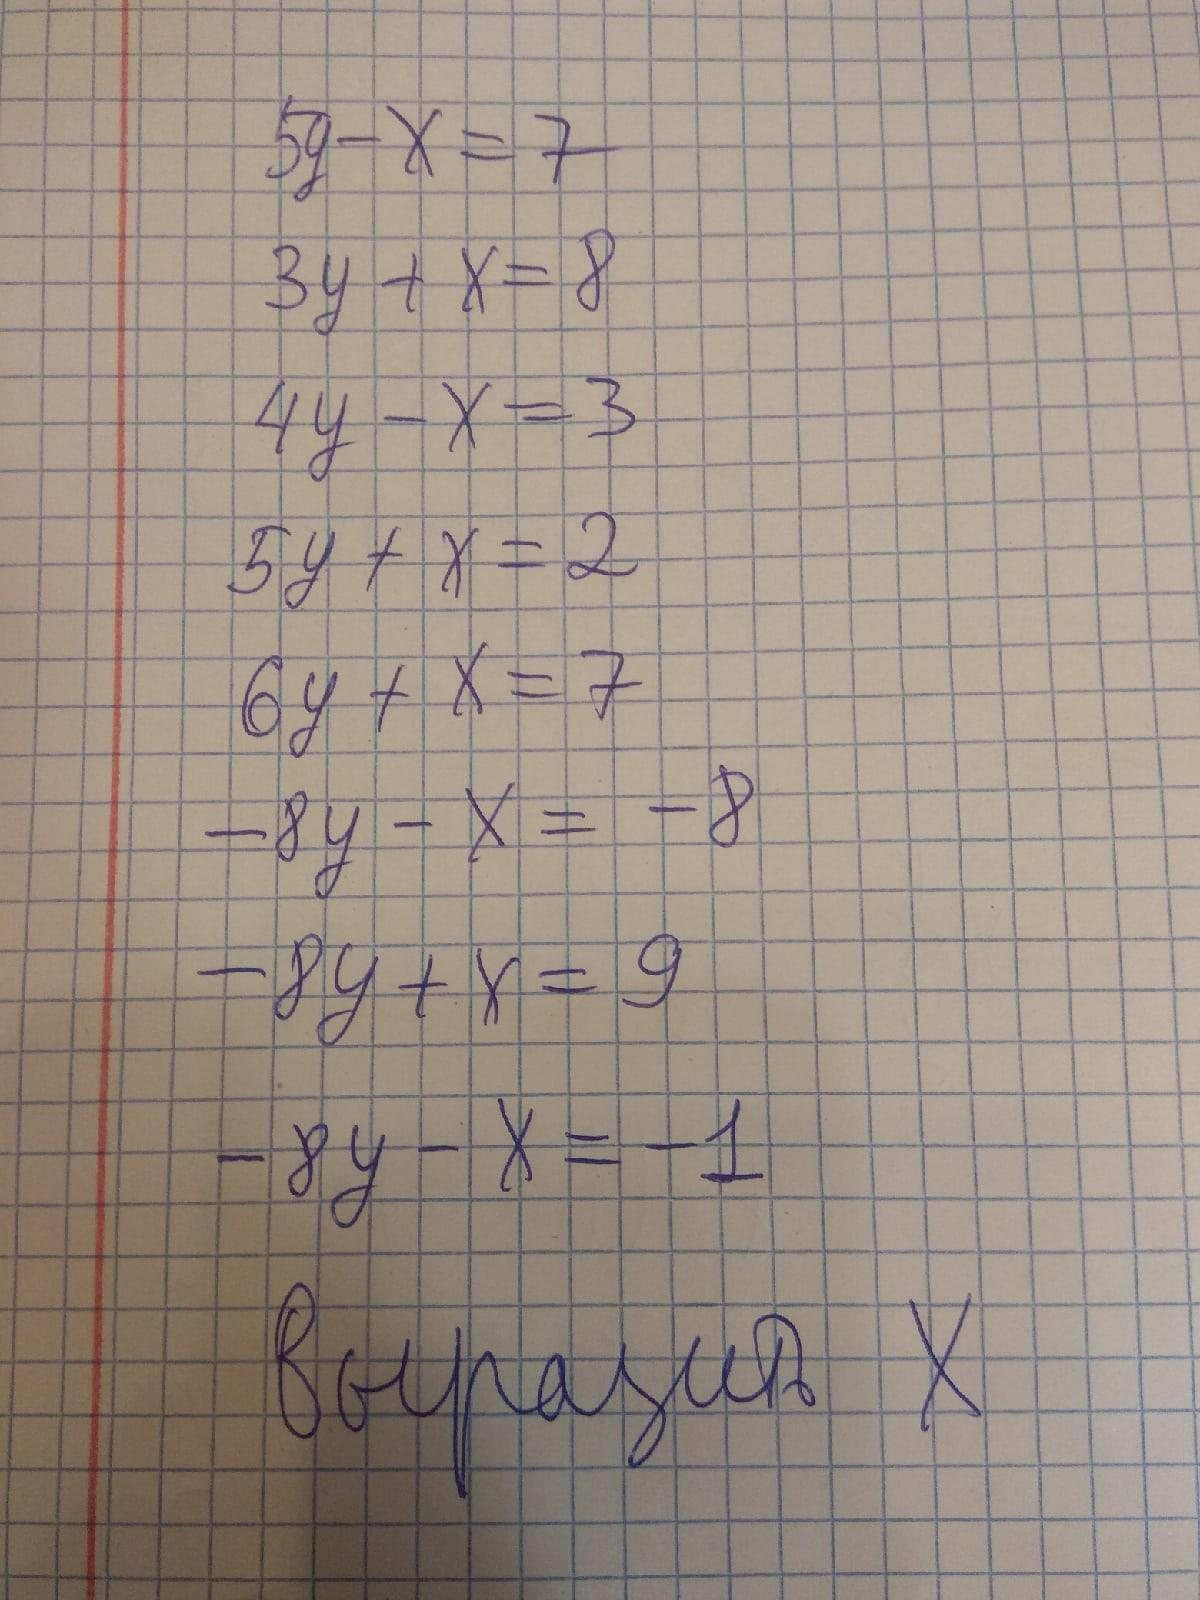 5y - x = 7
3y + x = 8
4y - x = 3
5y + x = 2
6y + x = 7
-8y - x = -8
-8y + x = 9
-8y - x = -1
Выразить x